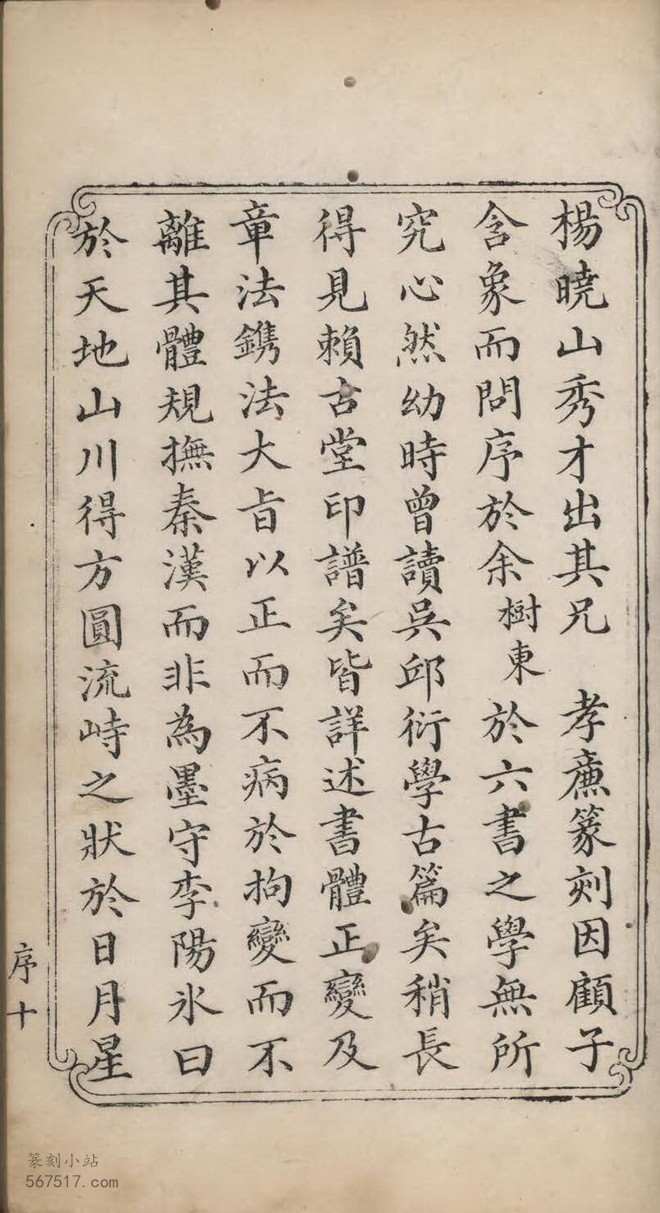 楊曉山秀才出其兄　孝廉篆刻因顧子
含象而問序於余樹東於六書之學無所
究心然幼時曾讀吳邱衍學古篇矣稍長
得見賴古堂印譜矣皆詳述書體正變及
章法鐫法大旨以正而不病於拘變而不
離其體規撫秦漢而非為墨守李陽氷曰
於天地山川得方圓流峙之狀於日月星
序十
篆刻小站
567517.com